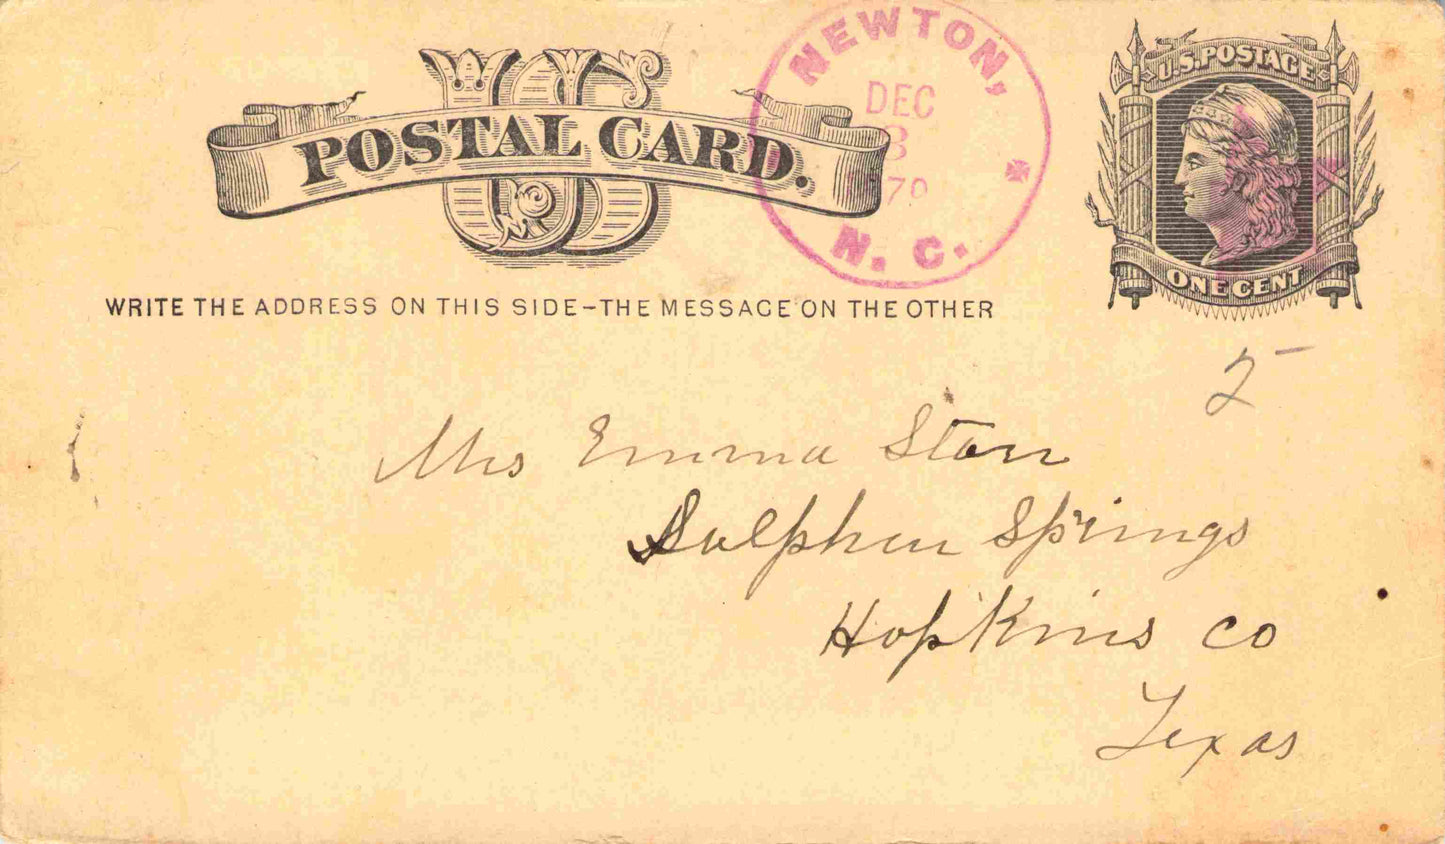 US
POSTAL CARD.
NEWTON,
DEC
3
79
N. C.
U.S. POSTAGE
ONE CENT
WRITE THE ADDRESS ON THIS SIDE-THE MESSAGE ON THE OTHER
2
Mrs Emma Starr
Sulphur Springs
Hopkins Co
Texas